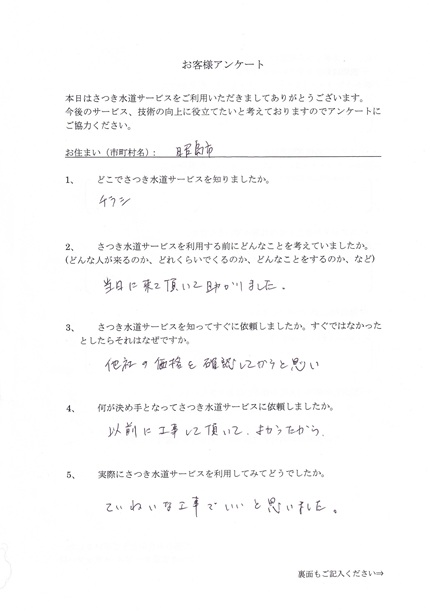 お客様アンケート
本日はさつき水道サービスをご利用いただきましてありがとうございます。
今後のサービス、技術の向上に役立てたいと考えておりますのでアンケートに
ご協力ください。
お住まい（市町村名）： 昭島市
1、 どこでさつき水道サービスを知りましたか。
チラシ
2、 さつき水道サービスを利用する前にどんなことを考えていましたか。
(どんな人が来るのか、どれくらいでくるのか、どんなことをするのか、など)
当日に来て頂いて助かりました。
3、 さつき水道サービスを知ってすぐに依頼しましたか。すぐではなかった
としたらそれはなぜですか。
他社の価格を確認してからと思い
4、 何が決め手となってさつき水道サービスに依頼しましたか。
以前に工事して頂いて、よかったから、
5、 実際にさつき水道サービスを利用してみてどうでしたか。
ていねいな工事でいいと思いました。
裏面もご記入ください⇒